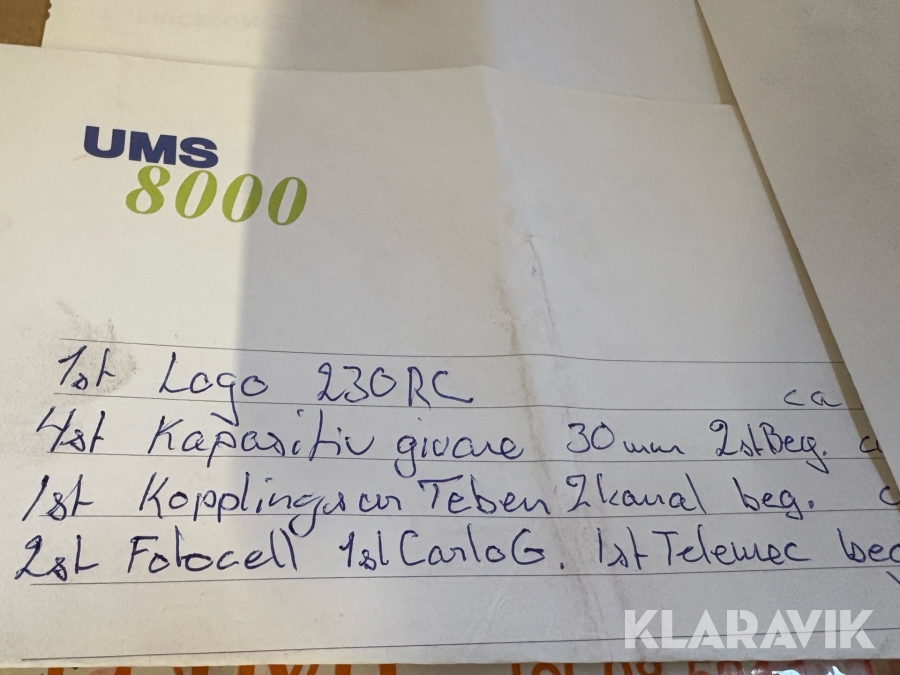 UMS
8000
1st Logo 230RC ca
4st Kapasitiv givare 30mm 2st Beg.
1st Kopplingsur Teben 2kanal beg.
2st Fotocell 1st Carlo G. 1st Telemec beg
KLARAVIK